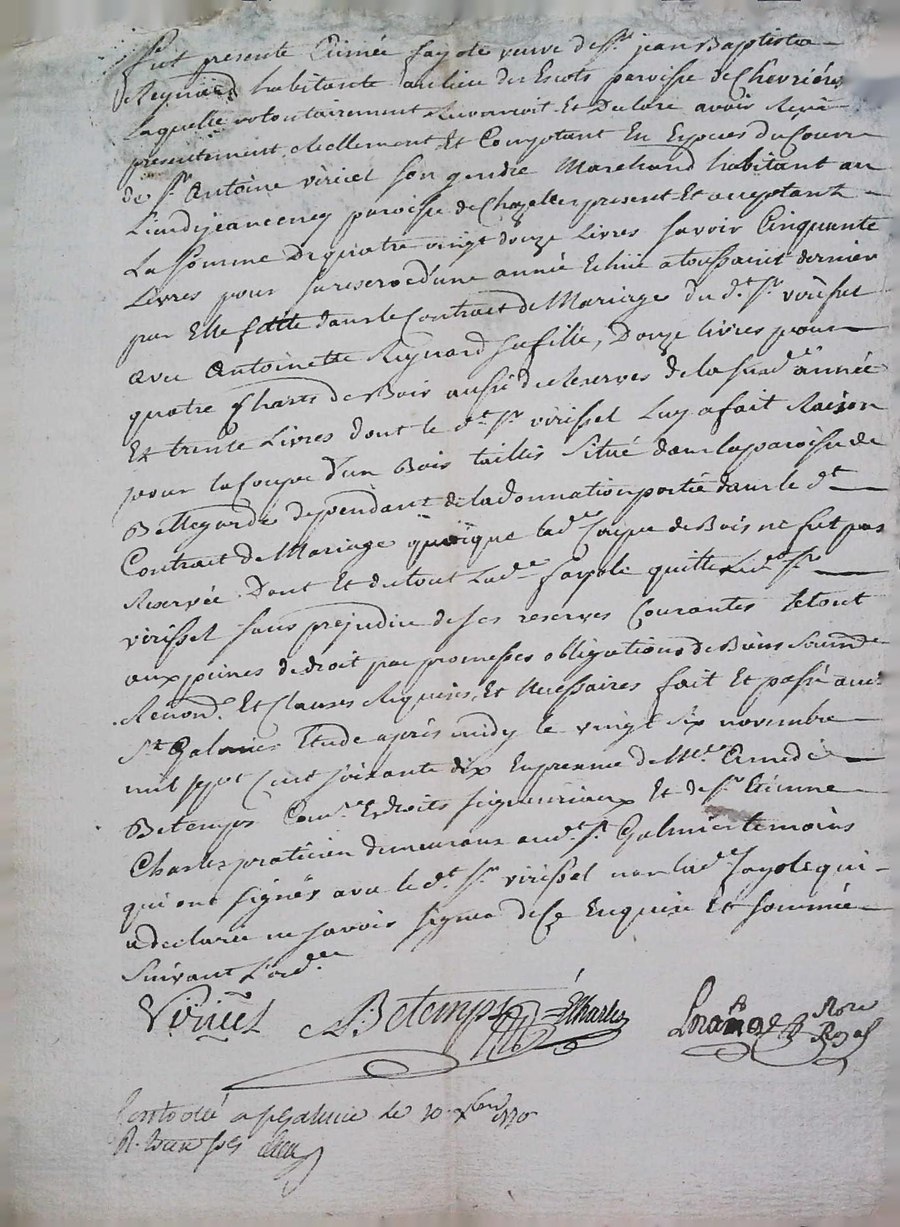 Fut presente Eimée fayole veuve de Sr. jean Baptiste
Reynard habitante au lieu des Escots paroisse de Chevrières
Laquelle volontairement Reconnoit Et Declare avoir Reçu
presentement Reellement Et Comptant En Especes du Cours
de Sr. Antoine viricel son gendre Marchand habitant au
Lieu de jeanceney paroisse de Chazelles present Et acceptant
La somme De quatre vingt douze Livres savoir Cinquante
Livres pour sa reserve d'une année Echue a toussaint dernier
par Elle faitte dans le Contract de Mariage du d. Sr. virissel
avec Antoinette Reynard sa fille, Douze livres pour
quatre Chars de Bois aussi de Reserves de la susde. année
Et trente Livres dont le dt. Sr. virissel Luy a fait Raison
pour la Coupe d'un Bois taillis Situé dans la paroisse de
Bellegarde dependant de la donnation portée dans le dt.
Contrat de Mariage quoique lade. Coupe de Bois ne fut pas
Reservée. Dont Et du tout Lade. fayole quitte Ledt. Sr.
virissel sans prejudice de ses reserves Courantes Le tout
aux peines de droit par promesses obligations de Biens
Renond. Et Clauses Requises Et Necessaires fait Et passé
St. Galmier Etude après midy le vingt six novembre
mil sept Cent soixante dix En presence de
Betemps Et droits seigneuriaux Et de Sr. Etienne
Charles praticien demeurans audt. St. Galmier temoins
qui ont signés avec le dt. Sr. virissel non lade. fayole qui
a declarée ne savoir signer de Ce Enquise Et sommée
Suivant L'orde.
Viricel A. Betemps E Charles Lorange Nore Royal
Controlé a St Galmier le 10 Xbre 1770
R.